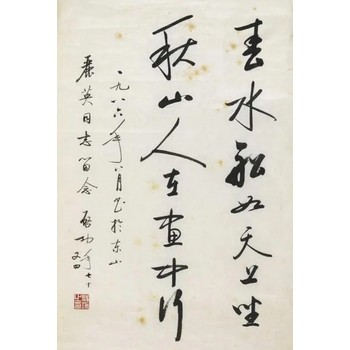 春水船如天上坐
秋山人在画中行
一九八六年八月书于东山
丽英同志留念 启功年七十
又四